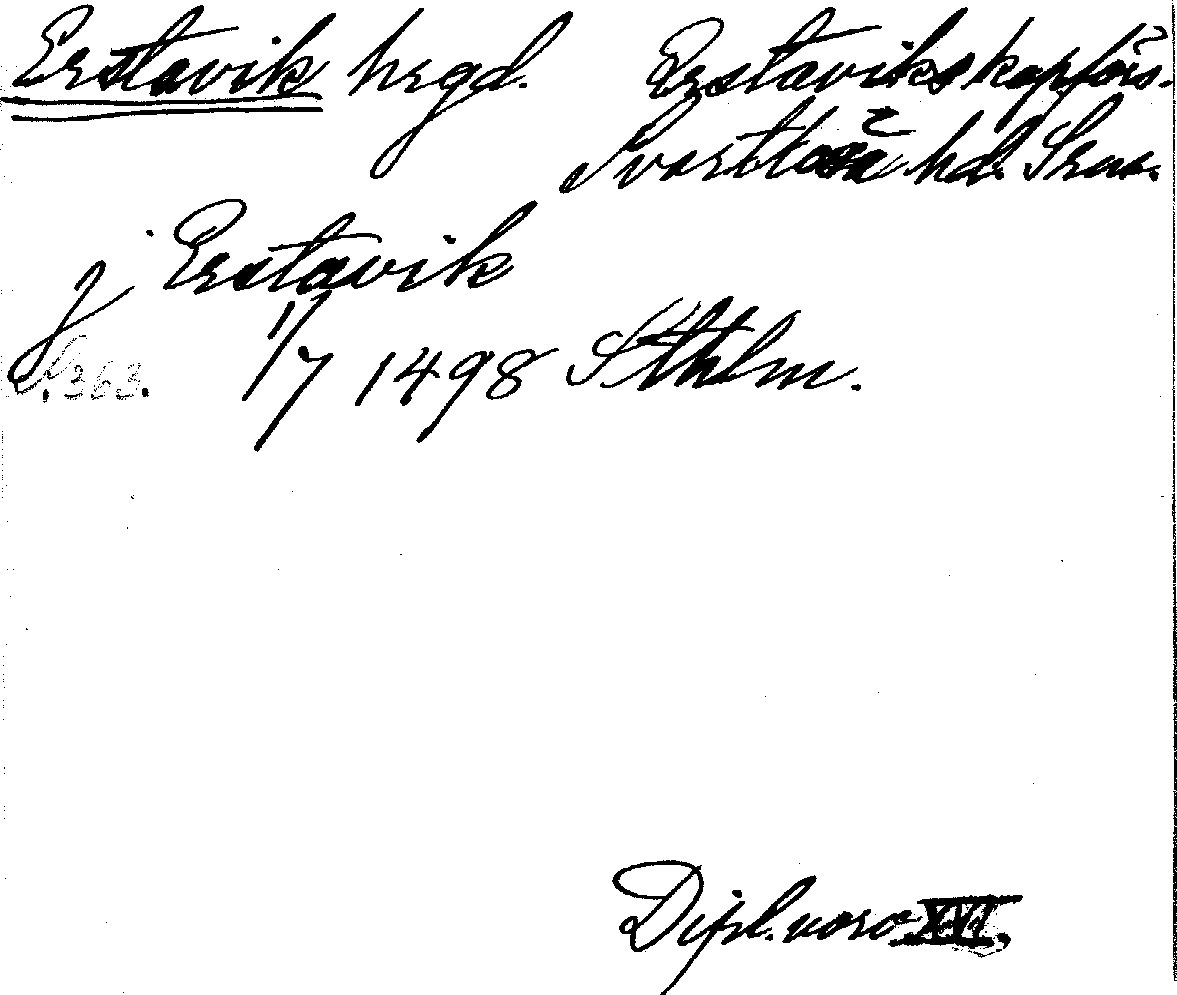 Erstavik hrgd. Erstaviks kapförs.
Svartlösa hd. Srm.
j Erstavik
17/7 1498 Sthlm.
S. 363.
Dipl. norv. XVI.